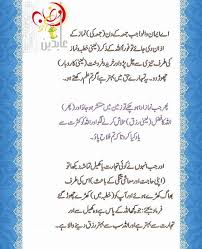 عابدین
اے ایمان والو! جب جمعہ کے دن (جمعہ کی) نماز کے
لئے اذان دی جائے تو فوراً اللہ کے ذکر (یعنی خطبہ نماز)
کی طرف تیزی سے چل پڑو اور خرید و فروخت (یعنی کاروبار)
چھوڑ دو۔ یہ تمہارے حق میں بہتر ہے اگر تم علم رکھتے ہو۔
پھر جب نماز ادا ہوچکے تو زمین میں منتشر ہو جاؤ اور (پھر)
اللہ کا فضل (یعنی رزق) تلاش کرنے لگو اور اللہ کو کثرت سے
یاد کیا کرو تاکہ تم فلاح پاؤ۔
اور جب انہوں نے کوئی تجارت یا کھیل تماشا دیکھا تو
(اپنی حاجت مندی اور معاشی تنگی کے باعث) اس کی طرف
بھاگ کھڑے ہوئے اور آپ کو (خطبہ میں) کھڑے چھوڑ گئے،
فرما دیجئے: جو کچھ اللہ کے پاس ہے وہ کھیل سے اور
تجارت سے بہتر ہے اور اللہ سب سے بہتر رزق دینے والا ہے۔